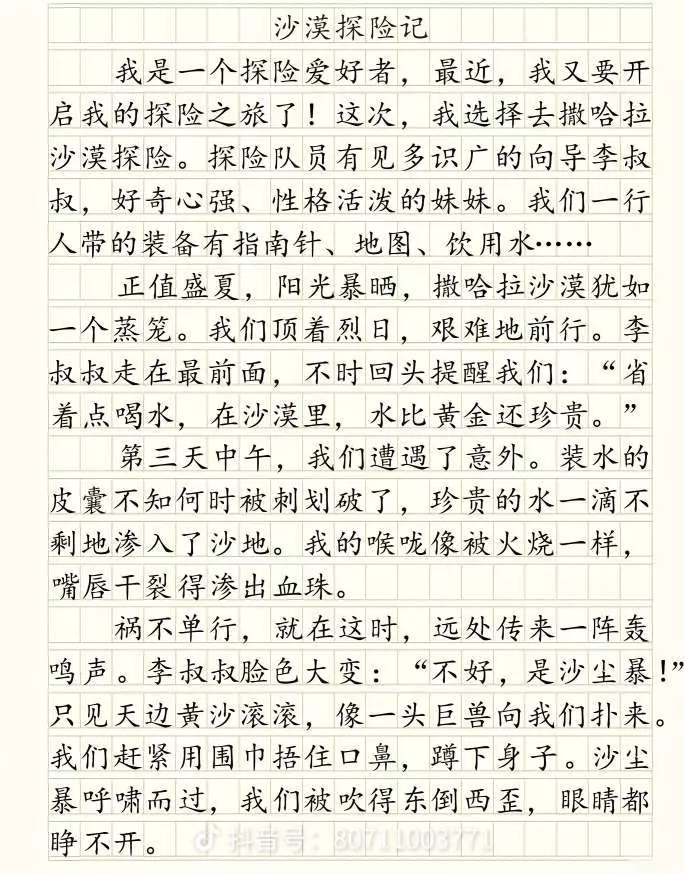 沙漠探险记
我是一个探险爱好者，最近，我又要开
启我的探险之旅了！这次，我选择去撒哈拉
沙漠探险。探险队员有见多识广的向导李叔
叔，好奇心强、性格活泼的妹妹。我们一行
人带的装备有指南针、地图、饮用水……
正值盛夏，阳光暴晒，撒哈拉沙漠犹如
一个蒸笼。我们顶着烈日，艰难地前行。李
叔叔走在最前面，不时回头提醒我们：“省
着点喝水，在沙漠里，水比黄金还珍贵。”
第三天中午，我们遭遇了意外。装水的
皮囊不知何时被刺划破了，珍贵的水一滴不
剩地渗入了沙地。我的喉咙像被火烧一样，
嘴唇干裂得渗出血珠。
祸不单行，就在这时，远处传来一阵轰
鸣声。李叔叔脸色大变：“不好，是沙尘暴！”
只见天边黄沙滚滚，像一头巨兽向我们扑来。
我们赶紧用围巾捂住口鼻，蹲下身子。沙尘
暴呼啸而过，我们被吹得东倒西歪，眼睛都
睁不开。
抖音号：80711003771